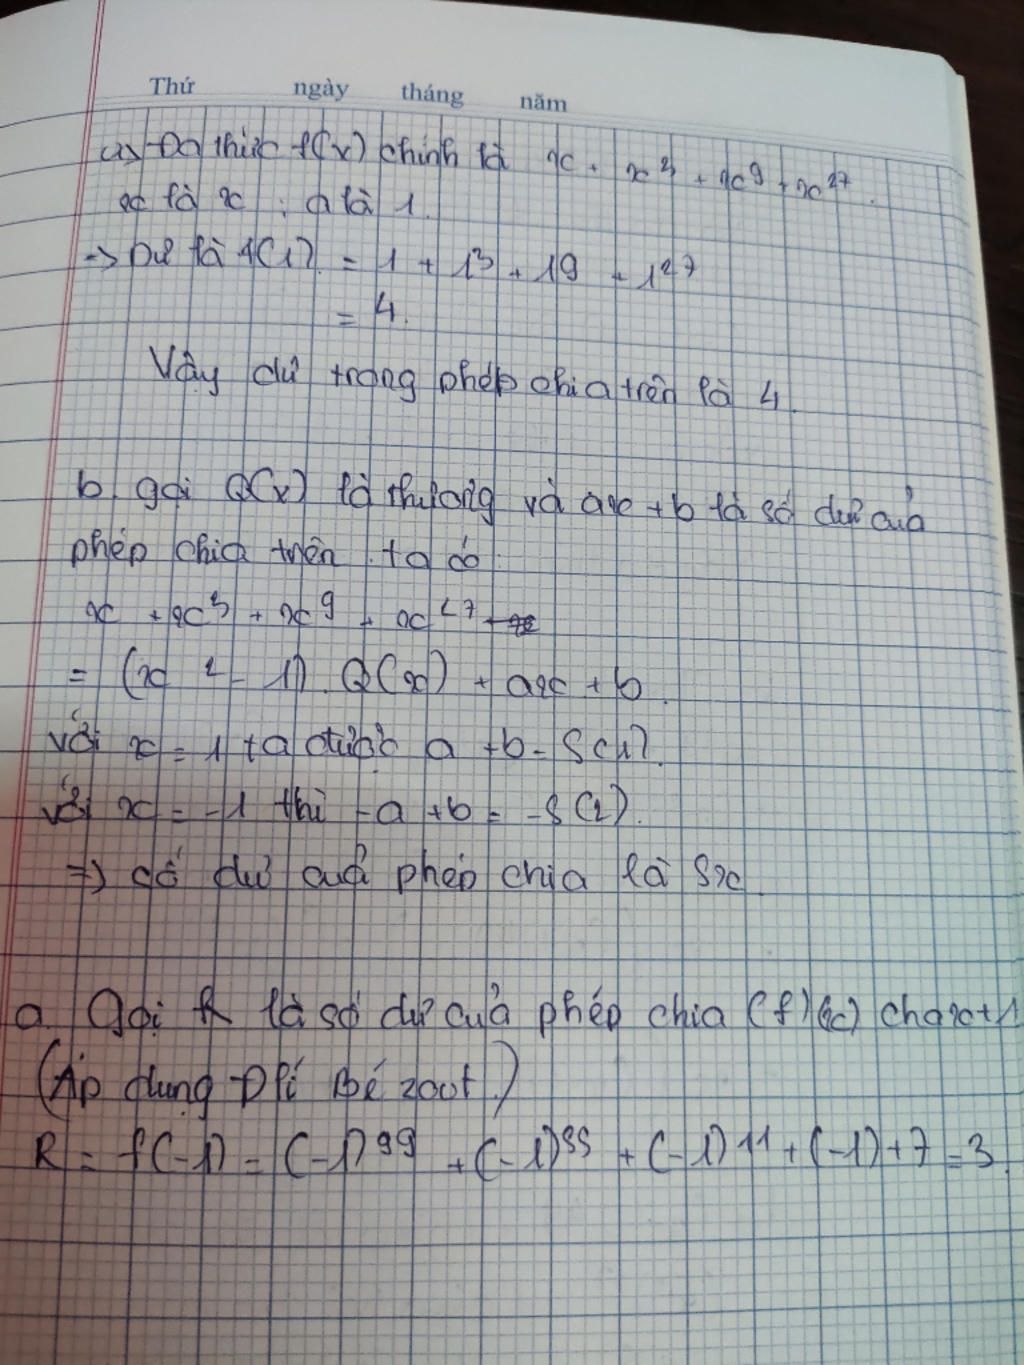 Thứ ngày tháng năm
a) Đa thức f(x) chính là x + x³ + x⁹ + x²⁷.
x là x ; a là 1.
=> Dư là f(1) = 1 + 1³ + 1⁹ + 1²⁷
= 4.
Vậy dư trong phép chia trên là 4.
b, gọi Q(x) là thương và ax + b là số dư của
phép chia trên. ta có:
x + x³ + x⁹ + x²⁷
= (x² - 1). Q(x) + ax + b.
với x = 1 ta được a + b = 5(1).
với x = -1 thì -a + b = -5(2).
=> số dư của phép chia là 5x.
a. Gọi R là số dư của phép chia (f)(x) cho x+1
(Áp dụng Đlí Bézout.)
R = f(-1) = (-1)⁹⁹ + (-1)⁵⁵ + (-1)¹¹ + (-1) + 7 = 3.